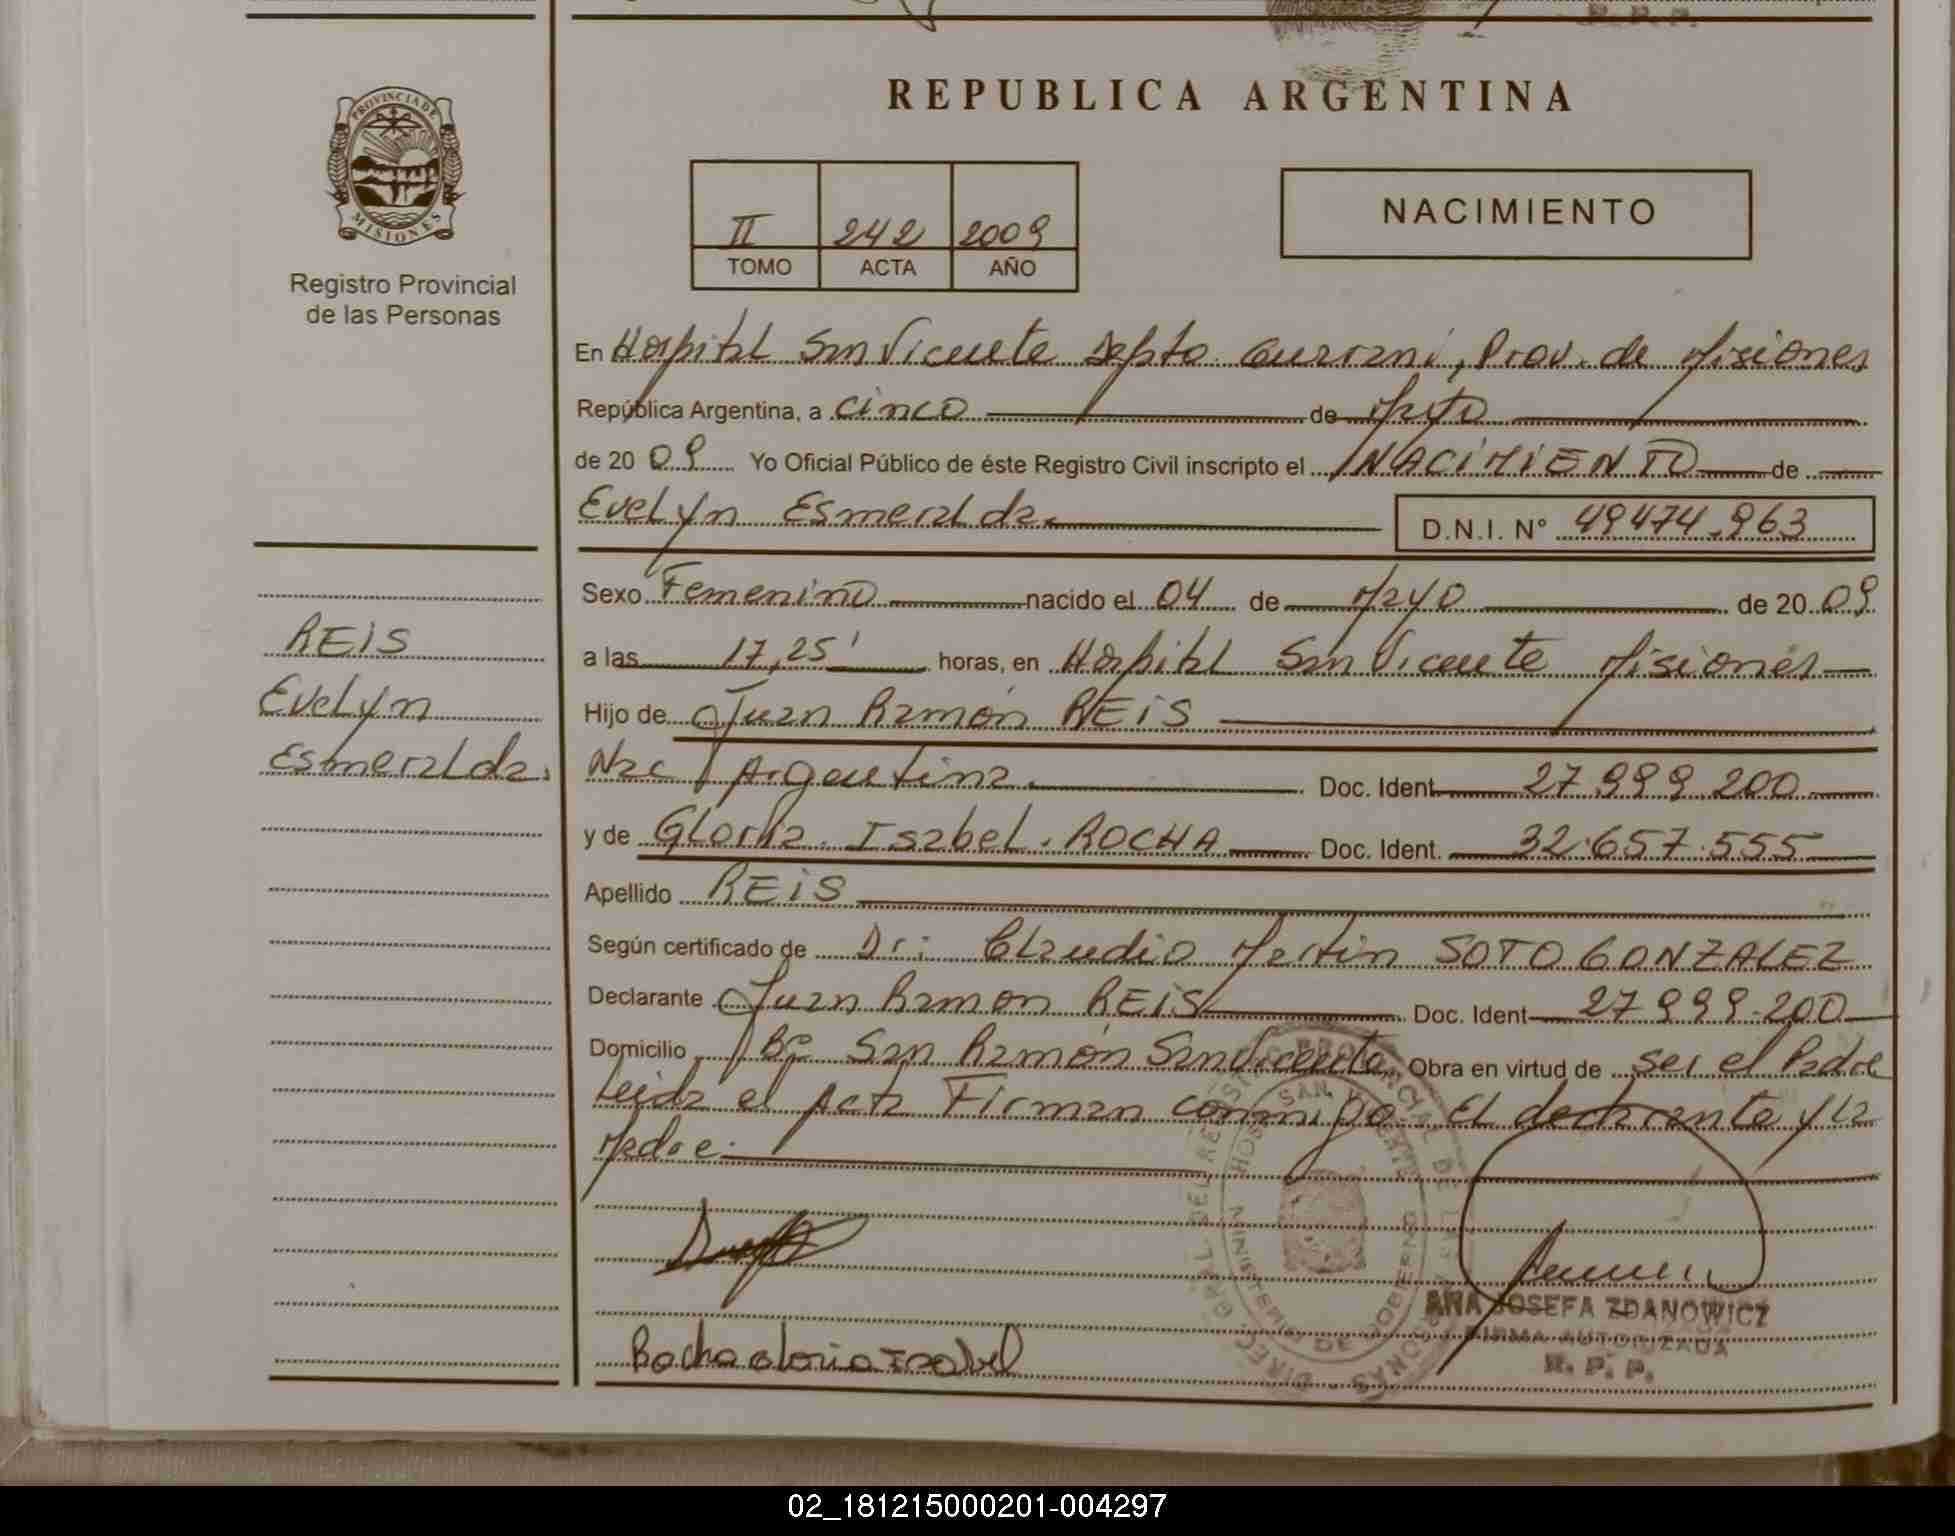 R. P. P.
REPUBLICA ARGENTINA
PROVINCIA DE
MISIONES
Registro Provincial
de las Personas
II 242 2009
TOMO ACTA AÑO
NACIMIENTO
En Hospital San Vicente Depto. Guarani, Prov. de Misiones
República Argentina, a cinco de Mayo
de 2009 Yo Oficial Público de éste Registro Civil inscripto el NACIMIENTO de
Evelyn Esmeralda.
D.N.I. Nº 49474.963
Sexo Femenino nacido el 04 de Mayo de 2009
a las 17,25' horas, en Hospital San Vicente Misiones
Hijo de Juan Ramón REIS
Nac Argentina. Doc. Ident 27.999.200
y de Gloria. Isabel. ROCHA Doc. Ident. 32.657.555
Apellido REIS
Según certificado de Dr: Claudio Martin SOTO GONZALEZ
Declarante Juan Ramon REIS Doc. Ident 27999.200
Domicilio Bº San Ramón San Vicente. Obra en virtud de ser el Padre
Leida el Acta Firman conmigo El declarante y la
Madre.
REIS
Evelyn
Esmeralda.
Rocha Gloria Isabel
DIREC. GRAL. DEL REGISTRO PROVINCIAL DE LAS PERSONAS
HOSP. SAN VICENTE
MINISTERIO DE GOBIERNO
ANA JOSEFA ZDANOWICZ
FIRMA AUTORIZADA
R. P. P.
02_181215000201-004297